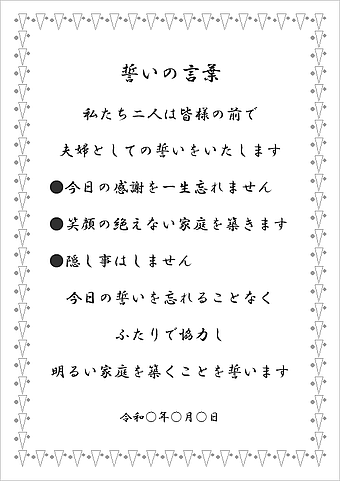 誓いの言葉
私たち二人は皆様の前で
夫婦としての誓いをいたします
●今日の感謝を一生忘れません
●笑顔の絶えない家庭を築きます
●隠し事はしません
今日の誓いを忘れることなく
ふたりで協力し
明るい家庭を築くことを誓います
令和○年○月○日